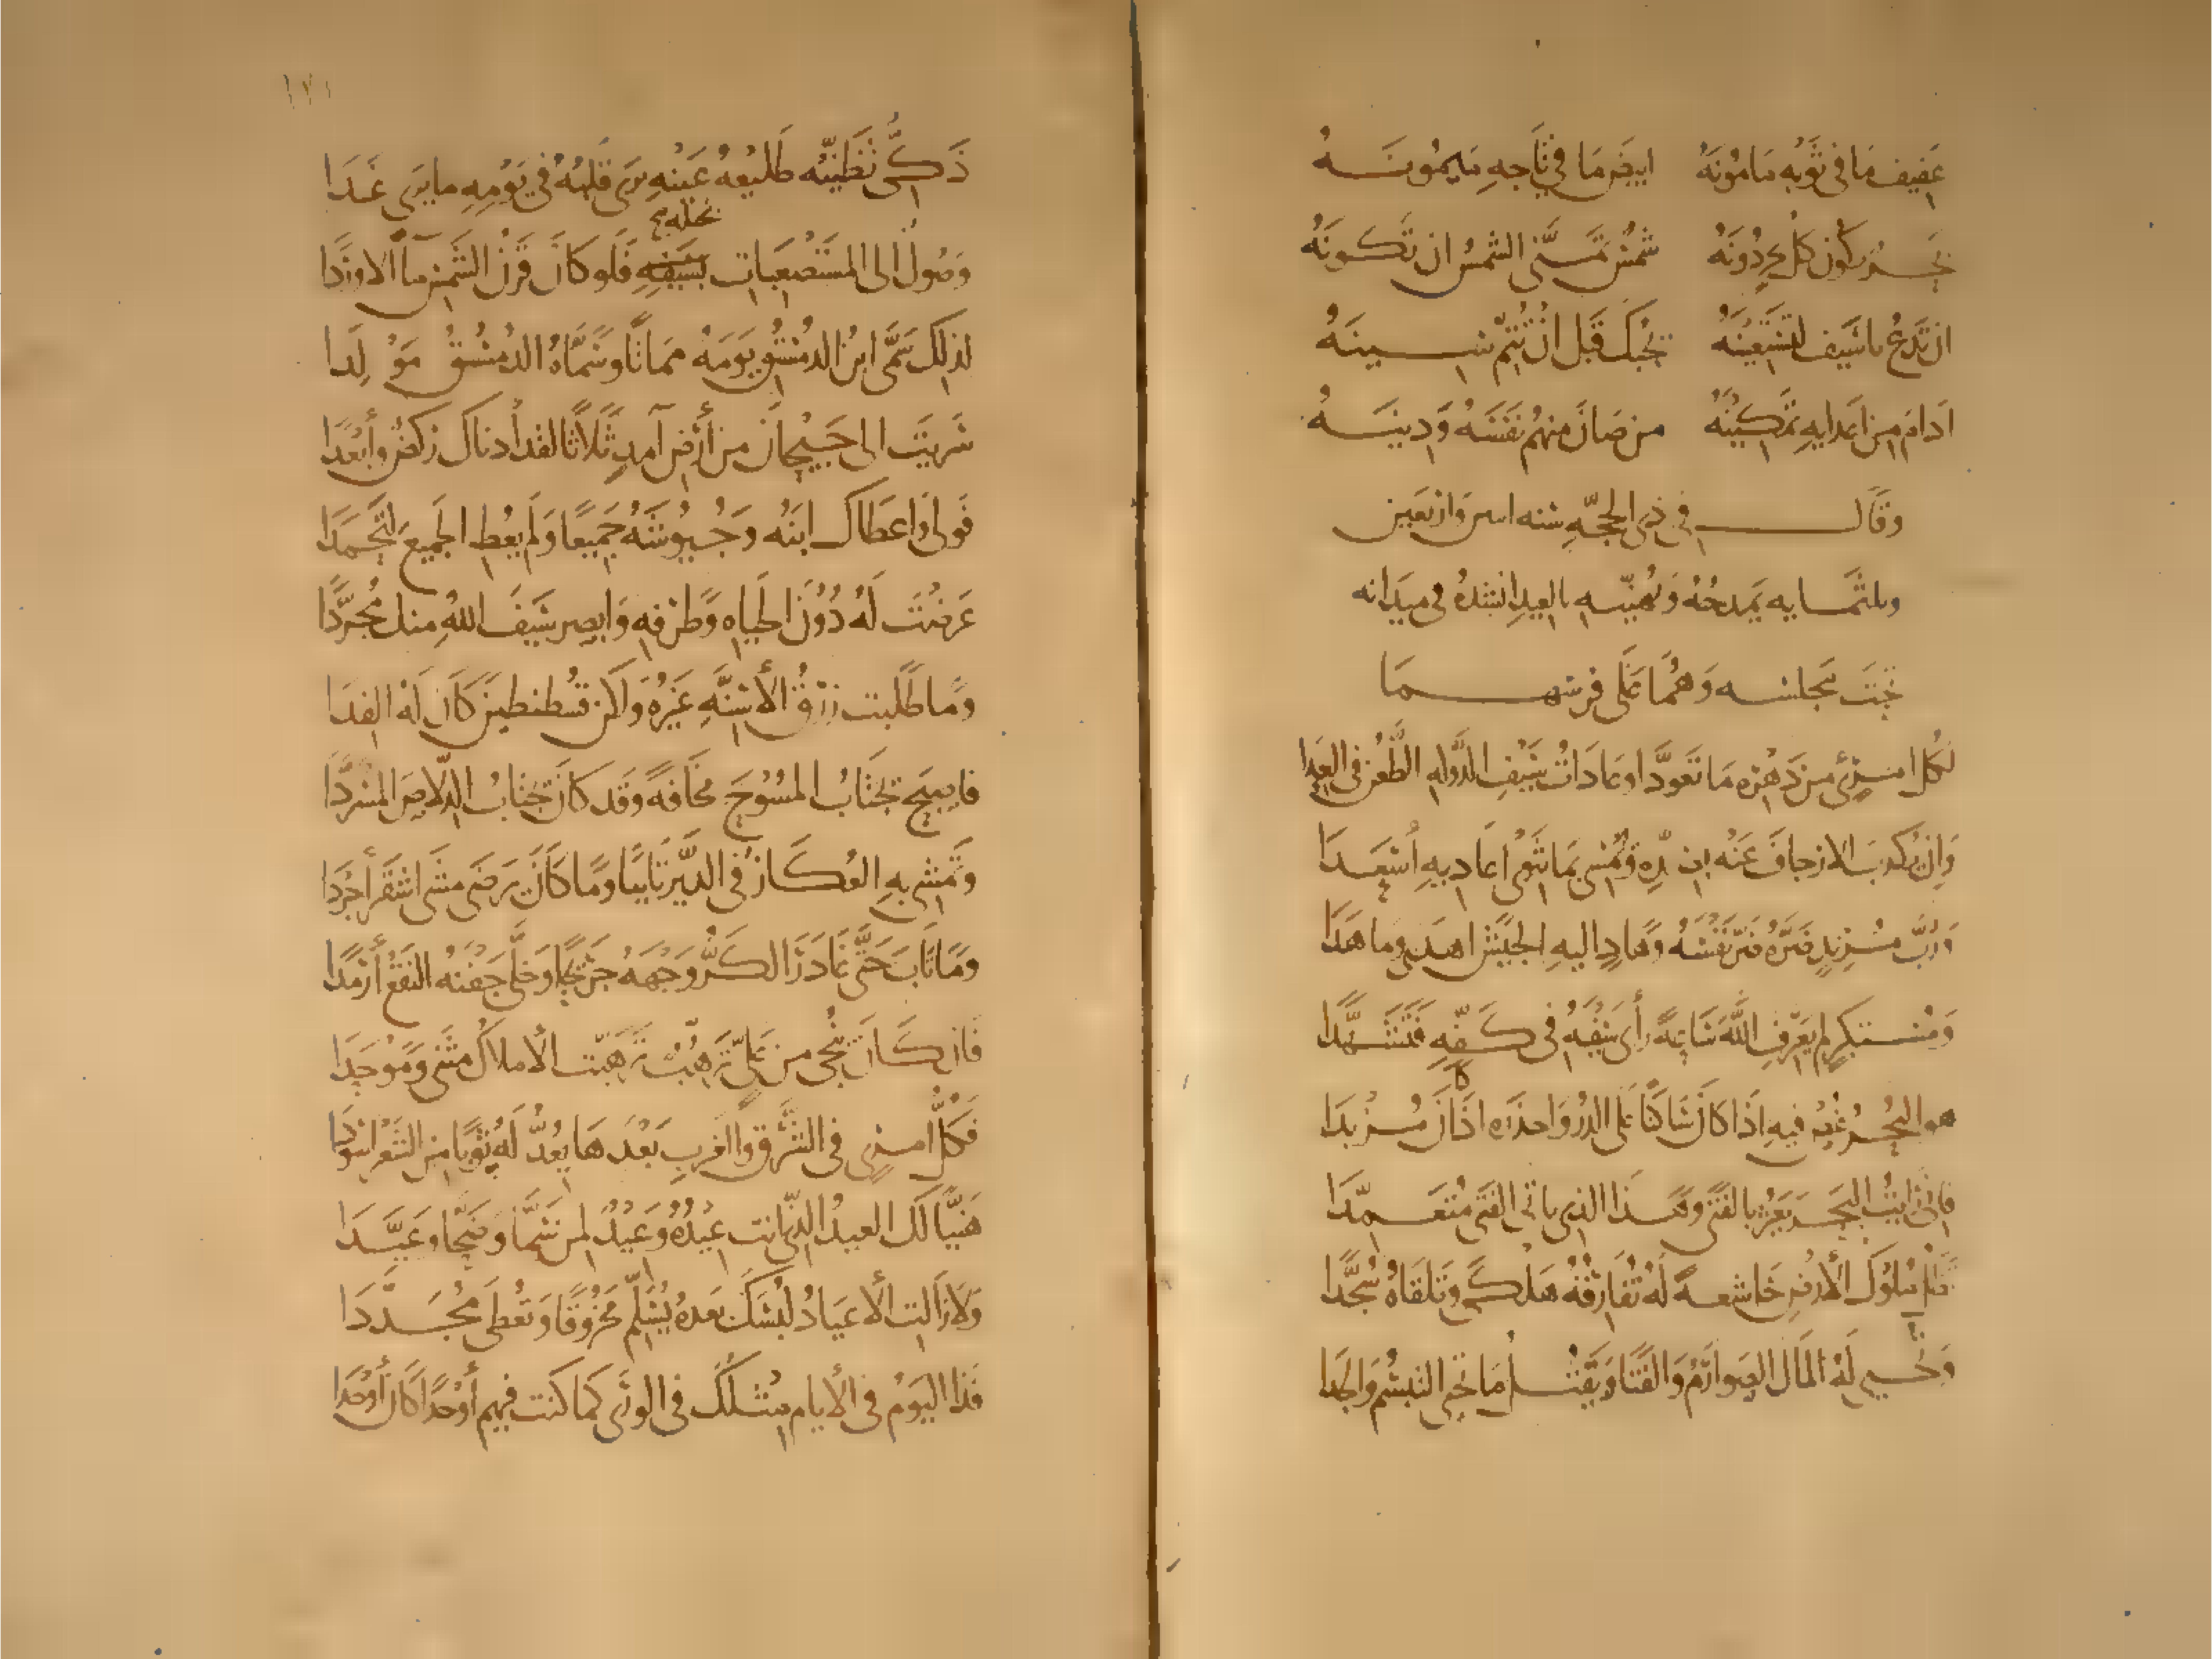 عَفِيفِ مَا فِي ثَوْبِهِ مَامُونَهُ ابيَضِ مَا فِي تَاجِهِ مَيمُونَــهُ
بَحْــرٌ يَكُون كُلُّ بَحرٍ دُونَهُ شَمْسٌ تَمَــنَّى الشمسُ ان تَكــونَهُ
ان تَدعُ ياسَيف لتَسْتَعِينَهُ يُجبكَ قَبل ان تُتِمَّ ســينَهُ
ادَامَ مِن اعدَايِهِ تَمْكينَهُ من صَانَ منهُم نَفسَهُ وَدِينَــهُ
وقَالــــ في ذي الحجَّهِ سنه اسر وَاربَعين
وثلثمــايه يَمدحُهُ وَيُهنّيــه بالعيدِ انشدهُ في ميدَانه
تَحتَ مَجلســه وَهُمَا عَلَى فرسَيهــمَا
لكُلّ امــرِئٍ مِن دَهْرِه مَا تَعَودَّا وعَادَاتُ سَيْفِ الدَّولهِ الطَّعْن في العِدَا
وَان يُكذبَ الارجافَ عَنهُ بضدّهِ وَيُمْسِي بمَا تَنوي اعَادِيهِ أَسْعَــدَا
وَرُبَّ مُــرِيدٍ ضَرّهُ ضَرّ نَفْسَهُ وَهادٍ اليهِ الجَيْشَ اهدَى وما هَدَا
وَمُســتكبِرٍ لم يَعرِفِ اللَّهَ سَاعِةً رأى سَيْفَهُ في كَــفّهِ فَتَشَــهَّدَا
هو البحْــرُ غُصْ فيهِ اذَا كانَ سَاكنًا عَلى الدُر وَاحذَره اذَا كانَ مُــزبدَا
فاني رَايتُ البَحــرَ يَعثُر بالفَتَى وهَــذا الذي ياتي الفَتَى مُتعَــمّدَا
تَظل مُلوكُ الأَرضِ خَاشعــةً لَهُ تُفَارِقُهُ هَلْكَــى وَتَلقَاهُ سُجَّدَا
وَتُحْــيي لَهُ المَالَ الصَوارِمُ وَالقَنَا وَيَقتُــلُ مَا تُحيي التبَسُّم وَالجَدَا
١٧١
ذَكــيٌّ تَظَنِّيهِ طَليعَهُ عَيْنِهِ يَرَى قَلبُهُ في يَوْمِهِ ما يرَى غَــدَا
بخيله
وَصُولٌ الى المستَصعَبات بسَيفِهِ فَلو كانَ قَرنُ الشَمسِ ماءً لاورَدَا
لذلكَ سَمَّى ابنُ الدمُسْتُقِ يَومَهُ مَمَاتًا وسَمَّاهُ الدُمُسْتُقُ مَوْ لِدَا
سَريتَ الى جَيْحانَ من أرضِ آمدٍ ثَلاثًا لقد ادناكَ رَكضٌ وأَبْعَدَا
فَولى واعطَاكَ ابنَهُ وَجُــيُوشَهُ جَميعًا وَلَم يُعطِ الجَميعَ لتُحْمَدَا
عَرَضْتَ لَهُ دُوْنَ الحَيَاه وَطَرْفهِ وَابصر سَيفَ اللهِ منك مُجرَّدَا
وَما طَلَبت زُرْقُ الأَسنَّهِ غَيرَهُ وَلكن قُسطنطين كَانَ لَهُ الفِدَا
فاصبحَ يَجْتابُ المسُوْحَ مخَافَةً وَقَد كانَ يَجتابُ الدّلاصَ المُسَردَّا
وَتَمْشي بهِ العُكّــازُ في الدَّيْرِ تَايبًا وَما كانَ يَرضَى مَشَى اشقَر أَجْرَدَا
وَمَا تَابَ حَتَّى غَادَرَ الكَــرُّ وَجْهَهُ جَرِيحًا وَخَلَّى جَفنَهُ النَقعُ أَرْمَدَا
فَان كَــانَ يُنْجي من عَليٍّ تَرَهُّبٌ تَرَهَبّت الأَملاكُ مَثنَى وَمَوْحَدَا
فَكُلُّ امــرِي في الشَّرقِ وَالغَربِ بَعْدَ هَا يُعِدُّ لَهُ ثَوْبًا مِن الشَعْر اسْوَدَا
هَنيًّا لَكَ العيدُ الذّي انت عِيْدُهُ وَعِيْدٌ لمن سَمَّى وَضَحَّا وعَيَّــدَا
وَلَا زَالت الأَعيَادُ لُبْسَكَ بَعدَهُ تُسَلِّم مَخرُوقًا وَتُعْطَى مُجَــدَّدَا
فَذا اليَومُ في الأَيام مثــلُكَ في الورَى كَمَا كنت فيهم أَوْحَدًا كَانَ أَوْحَدَا